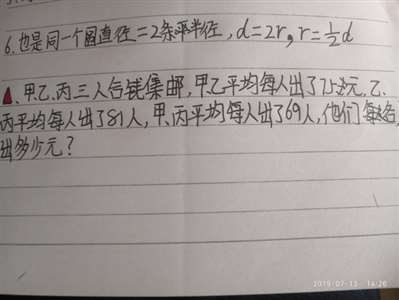 6.也是同一个圆直径=2条半径,d=2r,r=½d
甲、乙、丙三人合钱集邮,甲乙平均每人出了75元,乙、
丙平均每人出了81人,甲、丙平均每人出了69人,他们每各
出多少元?
2019-07-13 14:26